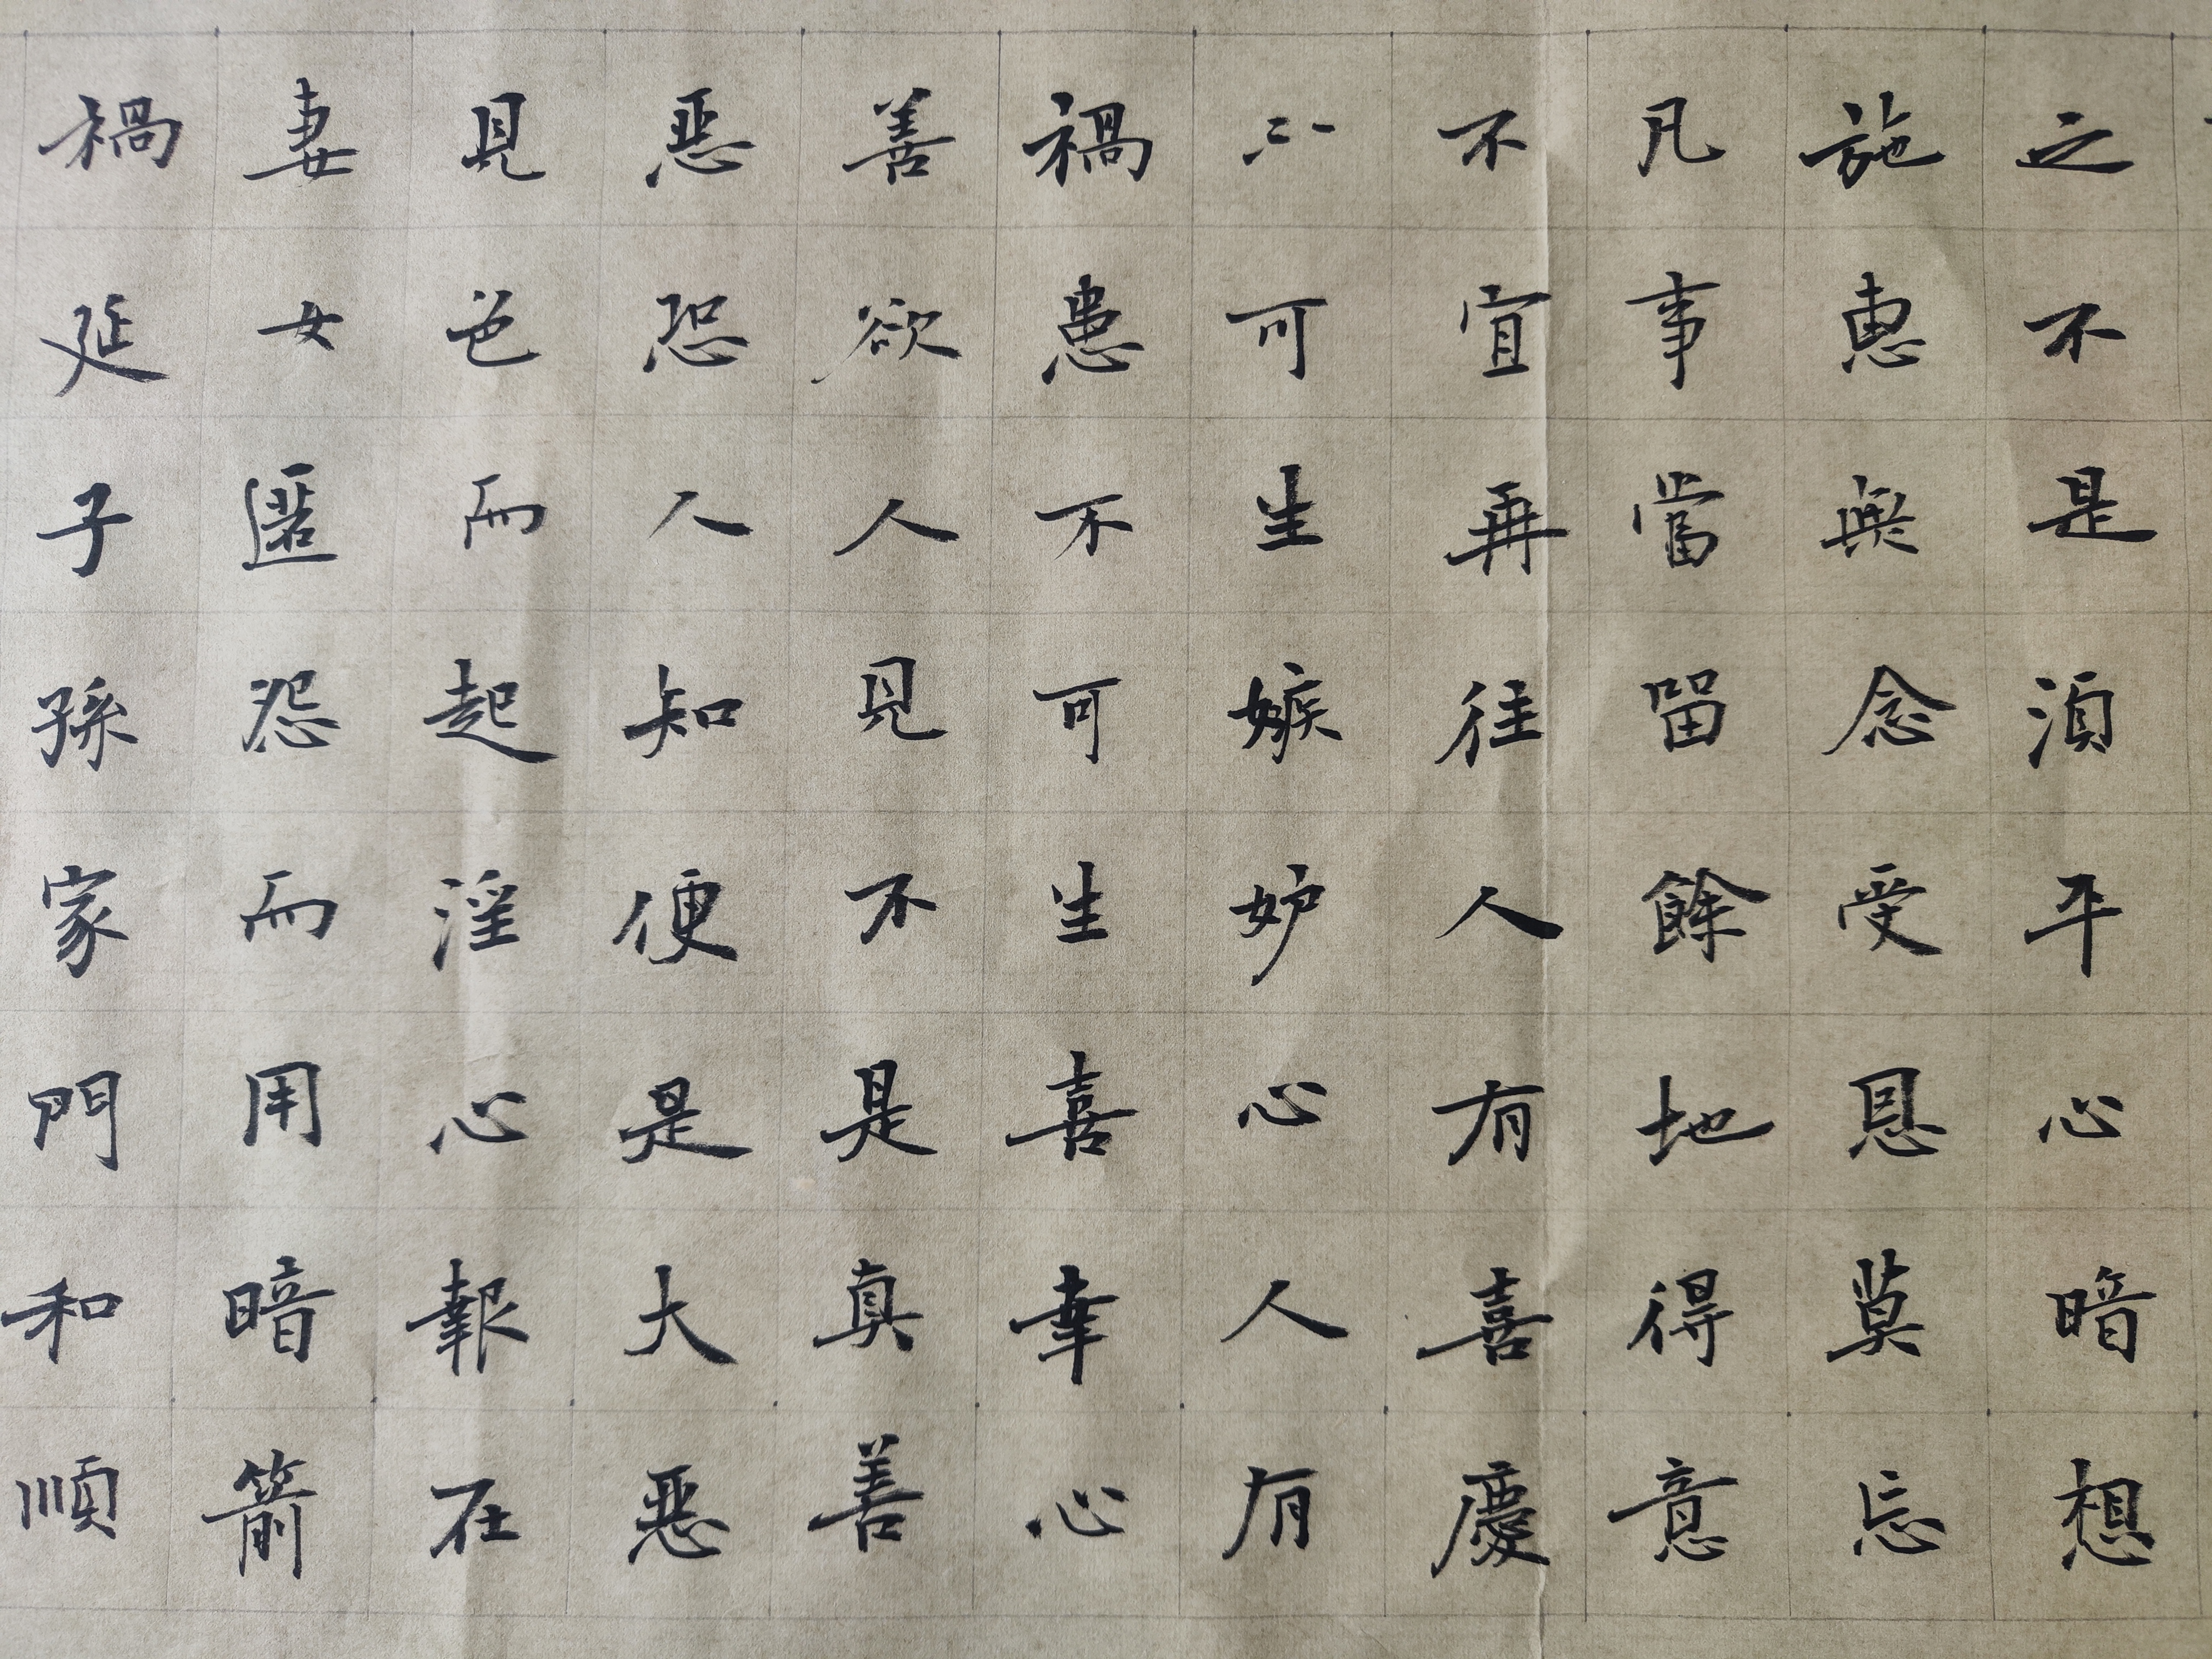 之不是湏平心暗想
施惠無念受恩莫忘
凡事當留餘地得意
不宜再往人有喜慶
可生嫉妒心人有
禍患不可生喜幸心
善欲人見不是真善
悪恐人知便是大悪
見色而起淫心報在
妻女匿怨而用暗箭
禍延子孫家門和順